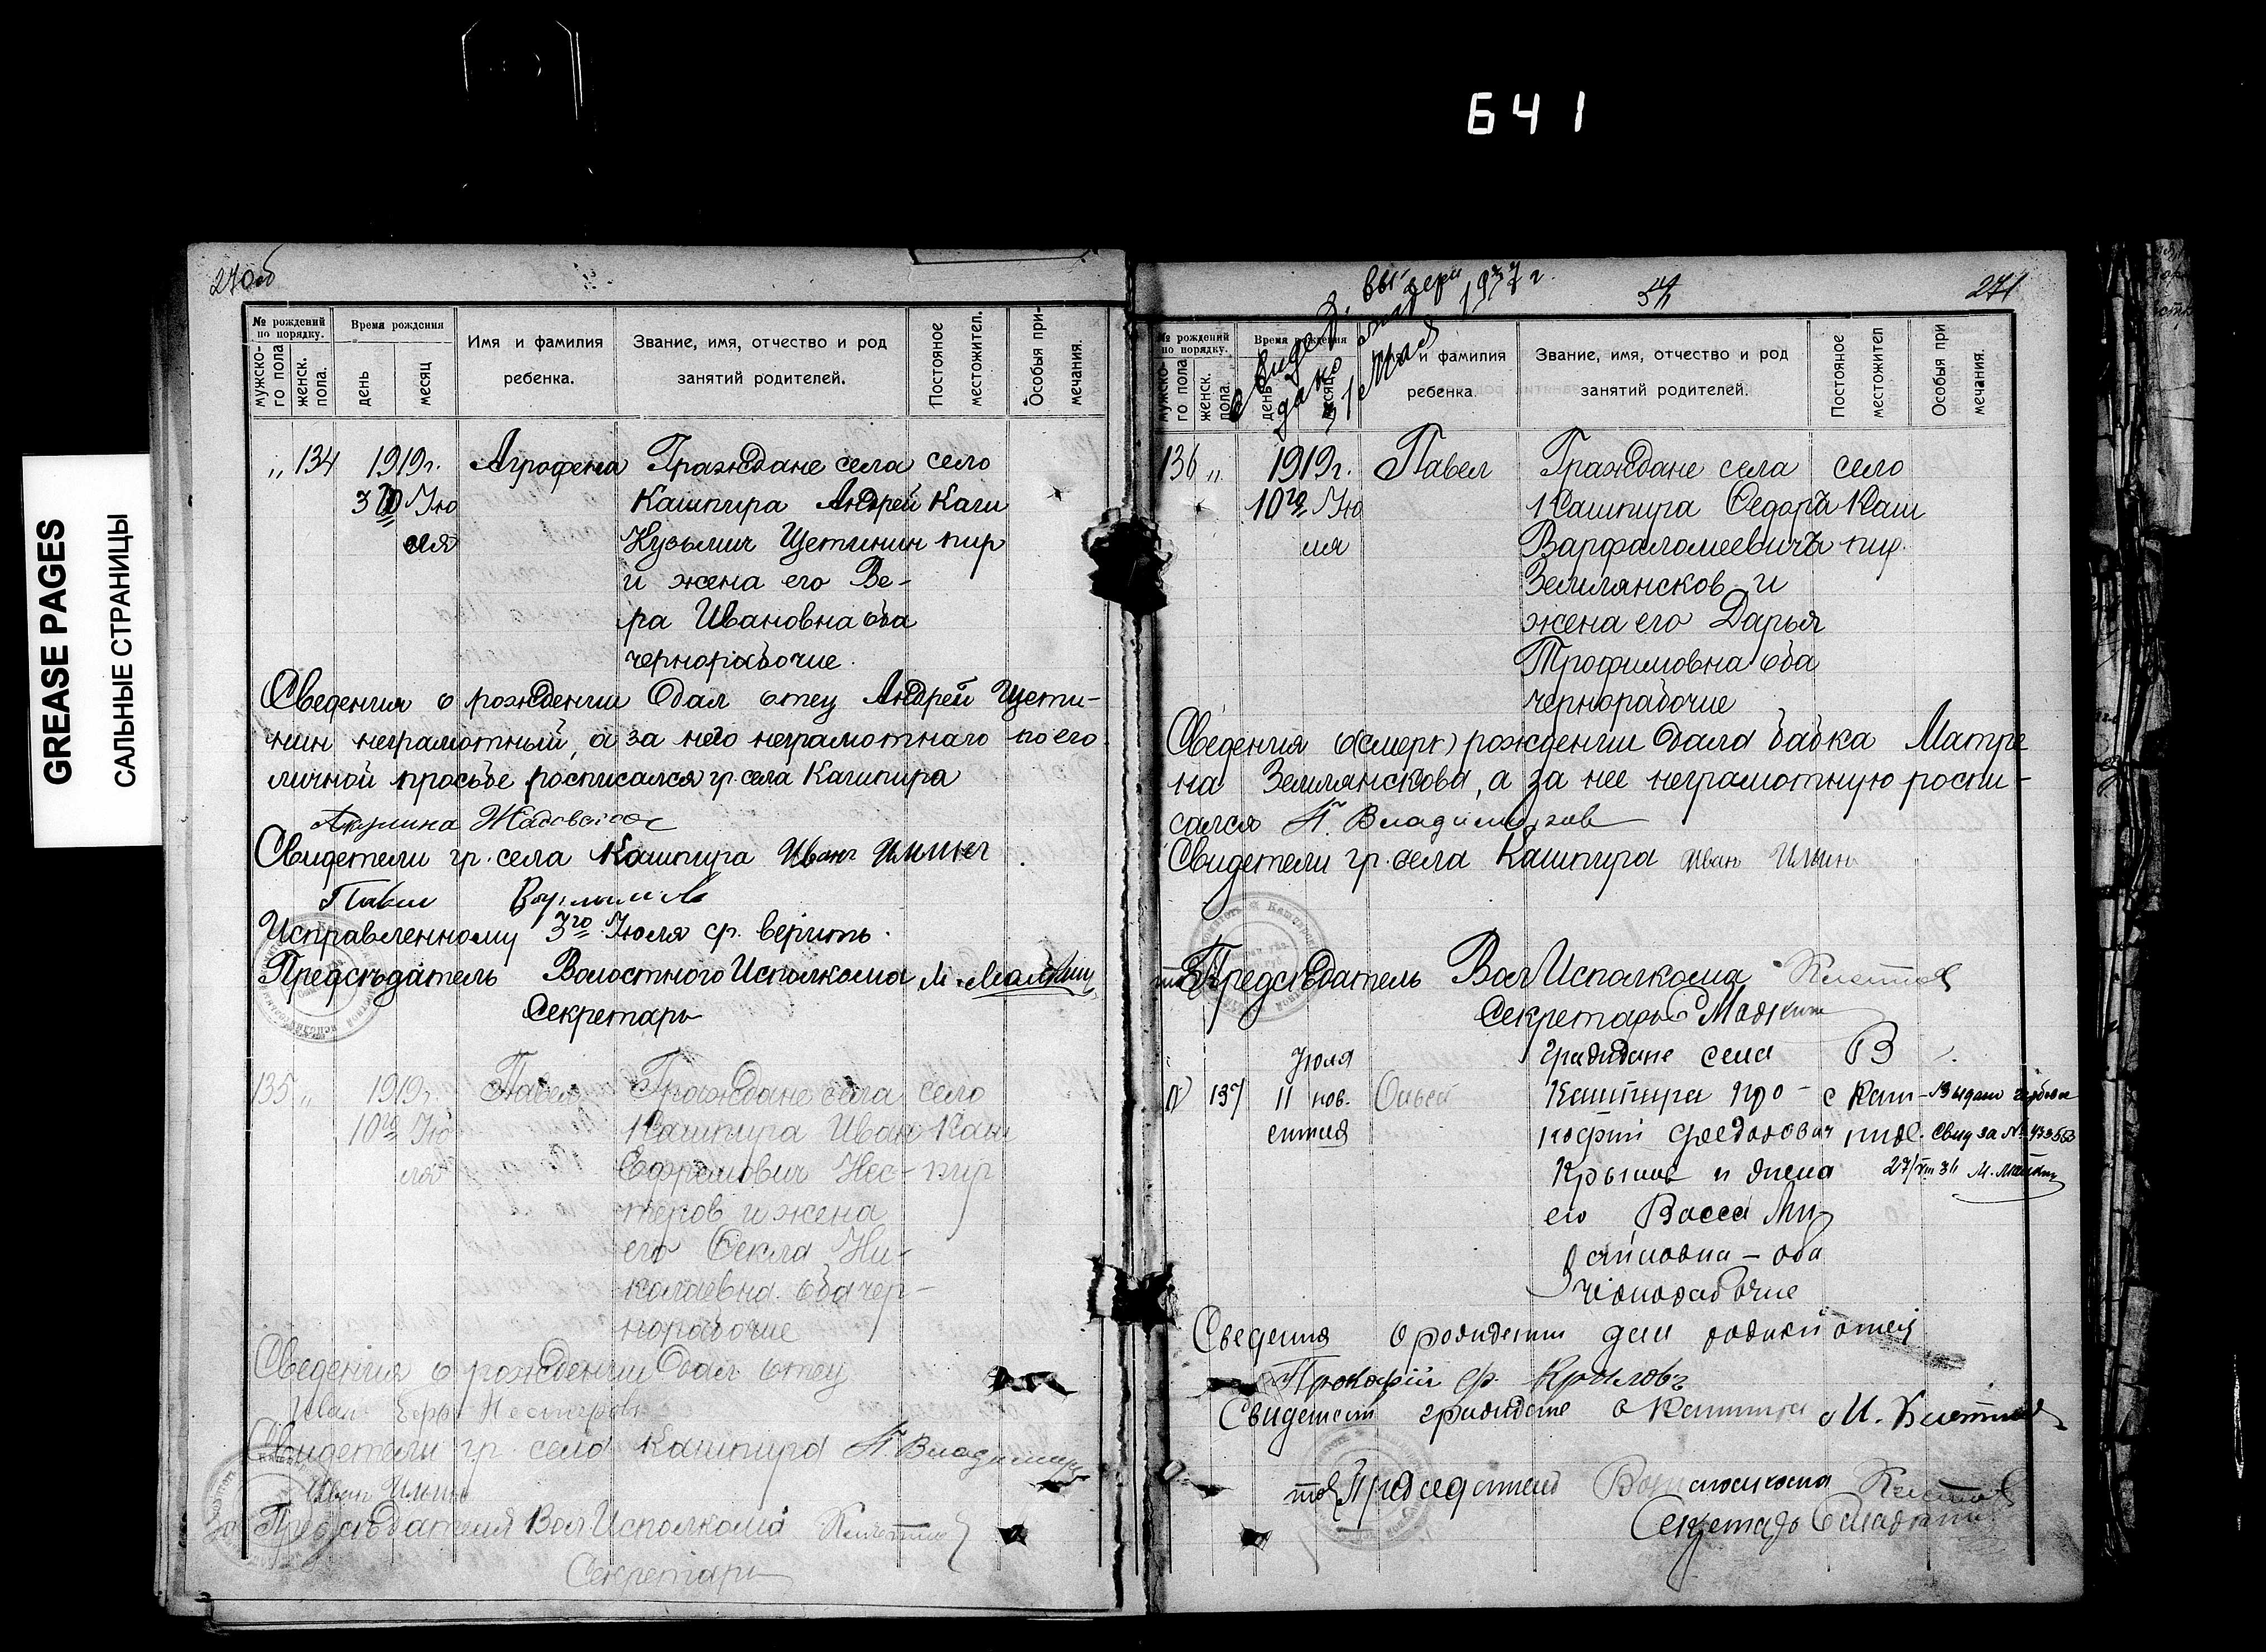 641
GREASE PAGES
САЛЬНЫЕ СТРАНИЦЫ
270об
№ рождений по порядку.
мужско-го пола
женск. пола.
Время рождения
день
месяц
Имя и фамилия ребенка.
Звание, имя, отчество и род занятий родителей.
Постояное местожител.
Особыя при-мечания.
„ 134 1919г. Агрофена Граждане села село
3го Ию Кашпира Андрей Каш
ля Кузьмич Щетинин пир
и жена его Ве-
ра Ивановна оба
чернорабочие.
Сведения о рождении дал отец Андрей Щети-
нин неграмотный, а за него неграмотнаго по его
личной просьбе росписался гр. села Кашпира
Свидетели гр. села Кашпира Иван Ильин
Павел
Исправленному 3го Июля ср. верить.
Предсѣдатель Волостного Исполкома М. Малкин
Секретарь
135 „ 1919г. Павел Граждане села село
10го Ию Кашпира Иван Каш
ля Ефремович Нес- пир
теров и жена
его Фекла Ни-
колаевна оба чер-
норабочие
Сведения о рождении дал отец
Иван Нестеров
Свидетели гр. села Кашпира П. Владимиров
Иван Ильин
Предсѣдателя Вол Исполкома
Секретарь
31 Мая 1937 г.
54
271
№ рождений по порядку.
мужско-го пола
женск. пола.
Время рождения
день
месяц
Имя и фамилия ребенка.
Звание, имя, отчество и род занятий родителей.
Постояное местожител
Особыя при мечания.
136 „ 1919г. Павел Граждане села село
10го Ию Кашпира Федоръ Каш
ля Варфаломеевичъ пир.
Землянсков и
жена его Дарья
Трофимовна оба
чернорабочие
Сведения о (смерт) рождении дала бабка Матре
на Землянскова, а за нее неграмотную роспи-
сался П. Владимиров
Свидетели гр. села Кашпира Иван Ильин
Предсѣдатель Вол Исполкома
Секретарь
Июля граждане села В
137 11 нов. Кашпира Про- с Каш-
стиля кофий Федорович пире. Свид за №
Крылов и жена 27/VIII 34
его Васса Ми
хайловна - оба
чернорабочие
Сведения о рождении дал родной отец
Прокофий Ф. Крыловъ
Свидетели граждане с Кашпира
тов Председателя Волисполкома
Секретарь